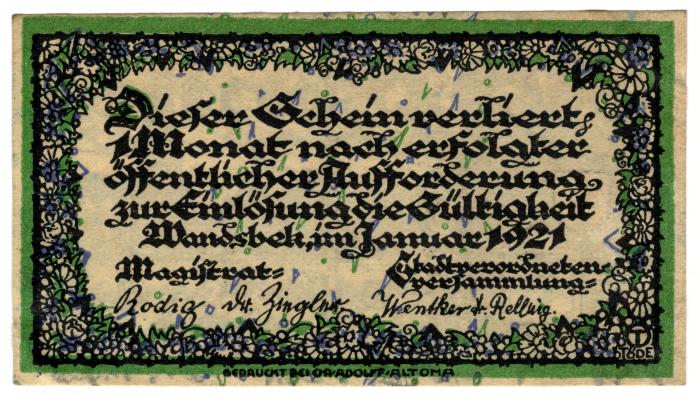 Dieser Schein verliert
1 Monat nach erfolgter
öffentlicher Aufforderung
zur Einlösung die Gültigkeit
Wandsbek, im Januar 1921
Magistrat= Stadtverordneten-
versammlung=
Rodig Dr. Ziegler Wentker
T
TÖDE
GEDRUCKT BEI CHR. ADOLFF-ALTONA